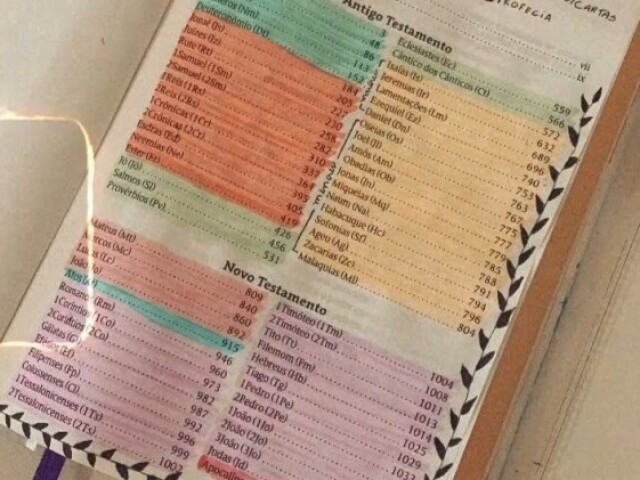 CARTAS
PROFECIA
Antigo Testamento
vii
ix
(Nm)
Deuteronômio (Dt)
Josué (Js)
Juízes (Jz)
Rute (Rt)
1Samuel (1Sm)
2Samuel (2Sm)
1Reis (1Rs)
2Reis (2Rs)
1Crônicas (1Cr)
2Crônicas (2Cr)
Esdras (Ed)
Neemias (Ne)
Ester (Et)
Jó (Jó)
Salmos (Sl)
Provérbios (Pv)
3
48
86
113
152
184
205
230
258
282
310
337
395
405
419
426
456
531
Eclesiastes (Ec) 559
Cântico dos Cânticos (Ct) 566
Isaías (Is) 572
Jeremias (Jr) 632
Lamentações (Lm) 689
Ezequiel (Ez) 696
Daniel (Dn) 740
Oseias (Os) 753
Joel (Jl) 763
Amós (Am) 767
Obadias (Ob) 775
Jonas (Jn) 777
Miqueias (Mq) 779
Naum (Na) 785
Habacuque (Hc) 788
Sofonias (Sf) 791
Ageu (Ag) 794
Zacarias (Zc) 796
Malaquias (Ml) 804
Novo Testamento
Mateus (Mt) 809
Marcos (Mc) 840
Lucas (Lc) 860
João (Jo) 892
Atos (At) 915
Romanos (Rm) 946
1Coríntios (1Co) 960
2Coríntios (2Co) 973
Gálatas (Gl) 982
Efésios (Ef) 987
Filipenses (Fp) 992
Colossenses (Cl) 996
1Tessalonicenses (1Ts) 999
2Tessalonicenses (2Ts) 1002
1Timóteo (1Tm) 1004
2Timóteo (2Tm) 1008
Tito (Tt) 1011
Filemom (Fm) 1013
Hebreus (Hb) 1014
Tiago (Tg) 1025
1Pedro (1Pe) 1029
2Pedro (2Pe) 1033
1João (1Jo)
2João (2Jo)
3João (3Jo)
Judas (Jd)